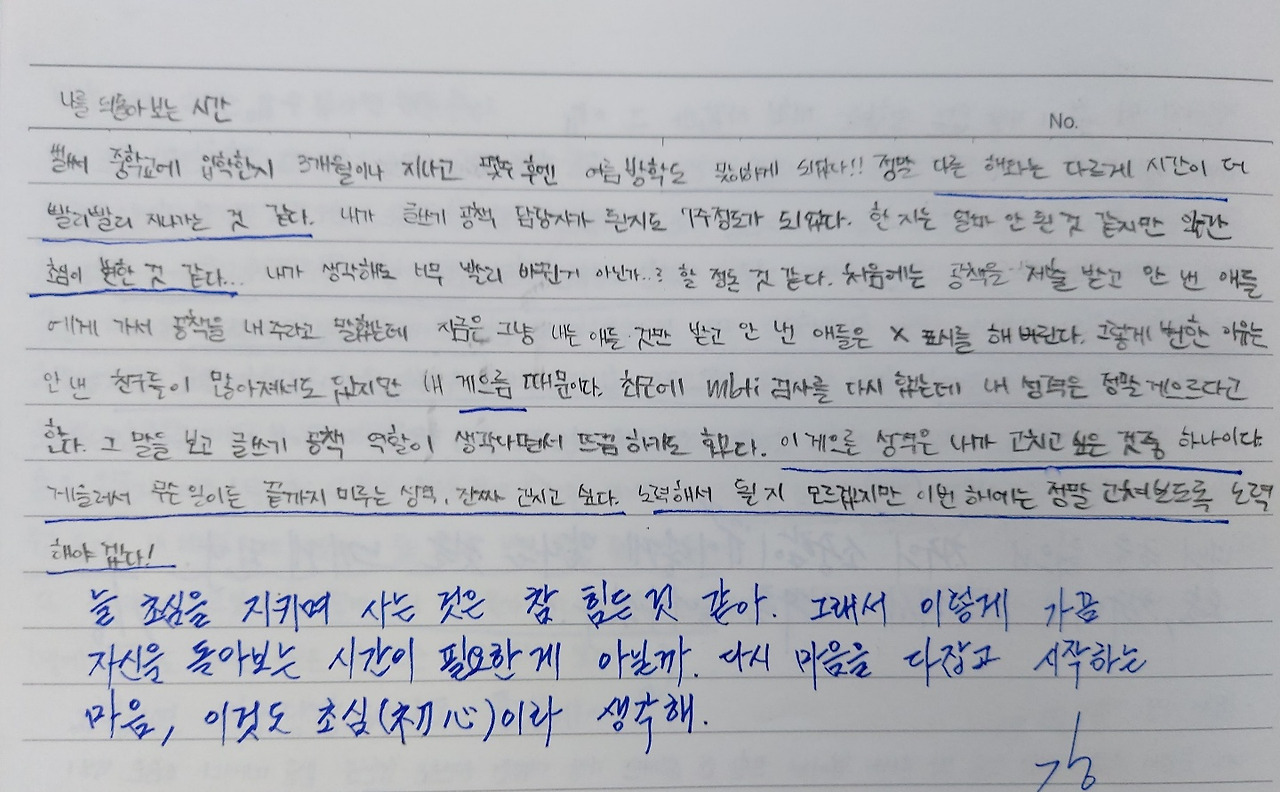 나를 되돌아보는 시간
No.
벌써 중학교에 입학한지 3개월이나 지나고 몇주 후엔 여름 방학도 맞이하게 되었다!! 정말 다른 해와는 다르게 시간이 더
빨리빨리 지나가는 것 같다. 내가 글쓰기 공책 담당자가 된지도 7주정도가 되었다. 한 지는 얼마 안 된 것 같지만 약간
초심이 변한 것 같다... 내가 생각해도 너무 빨리 바뀐거 아닌가..? 할 정도 것 같다. 처음에는 공책을 제출 받고 안 낸 애들
에게 가서 공책을 내주라고 말했는데 지금은 그냥 내는 애들 것만 받고 안 낸 애들은 X 표시를 해 버린다. 그렇게 변한 이유는
안 낸 친구들이 많아져서도 있지만 내 게으름 때문이다. 최근에 mbti 검사를 다시 했는데 내 성격은 정말 게으르다고
한다. 그 말을 보고 글쓰기 공책 역할이 생각나면서 뜨끔하기도 했다. 이 게으른 성격은 내가 고치고 싶은 것중 하나이다.
게을러서 무슨 일이든 끝까지 미루는 성격, 진짜 고치고 싶다. 노력해서 될 지 모르겠지만 이번 해에는 정말 고쳐보도록 노력
해야 겠다!
늘 초심을 지키며 사는 것은 참 힘든 것 같아. 그래서 이렇게 가끔
자신을 돌아보는 시간이 필요한 게 아닐까. 다시 마음을 다잡고 시작하는
마음, 이것도 초심(初心)이라 생각해.
강